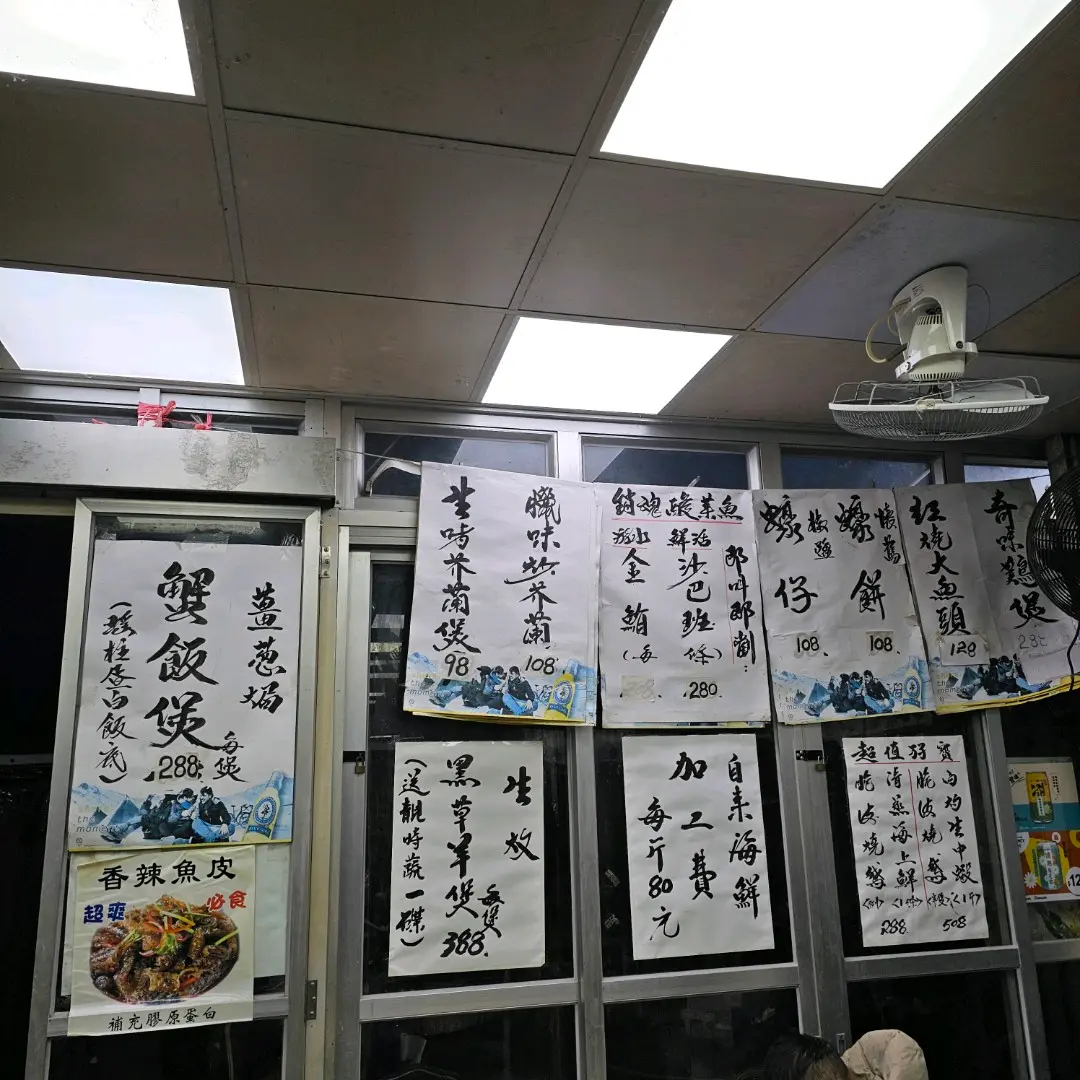 薑葱焗
蟹飯煲
每煲
288.
(瑤柱蛋白飯底)
the
moment
香辣魚皮
超爽
必食
補充膠原蛋白
臘味炒芥蘭
108.
生啫芥蘭煲
98
生放
黑草羊煲
每煲
388.
(送靚時蔬一碟)
銷魂酸菜魚
即叫即劏.
鮮活
沙巴班
(每條)
280.
金鯧
自來海鮮
加工費
每斤80元
蠔餅
108.
椒鹽
蠔仔
108.
奇味鷄煲
288
紅燒大魚頭
128
超值孖寶
白灼生中蝦
<1斤>
脆皮燒鵝
508
清蒸海上鮮
脆皮燒鵝
288.